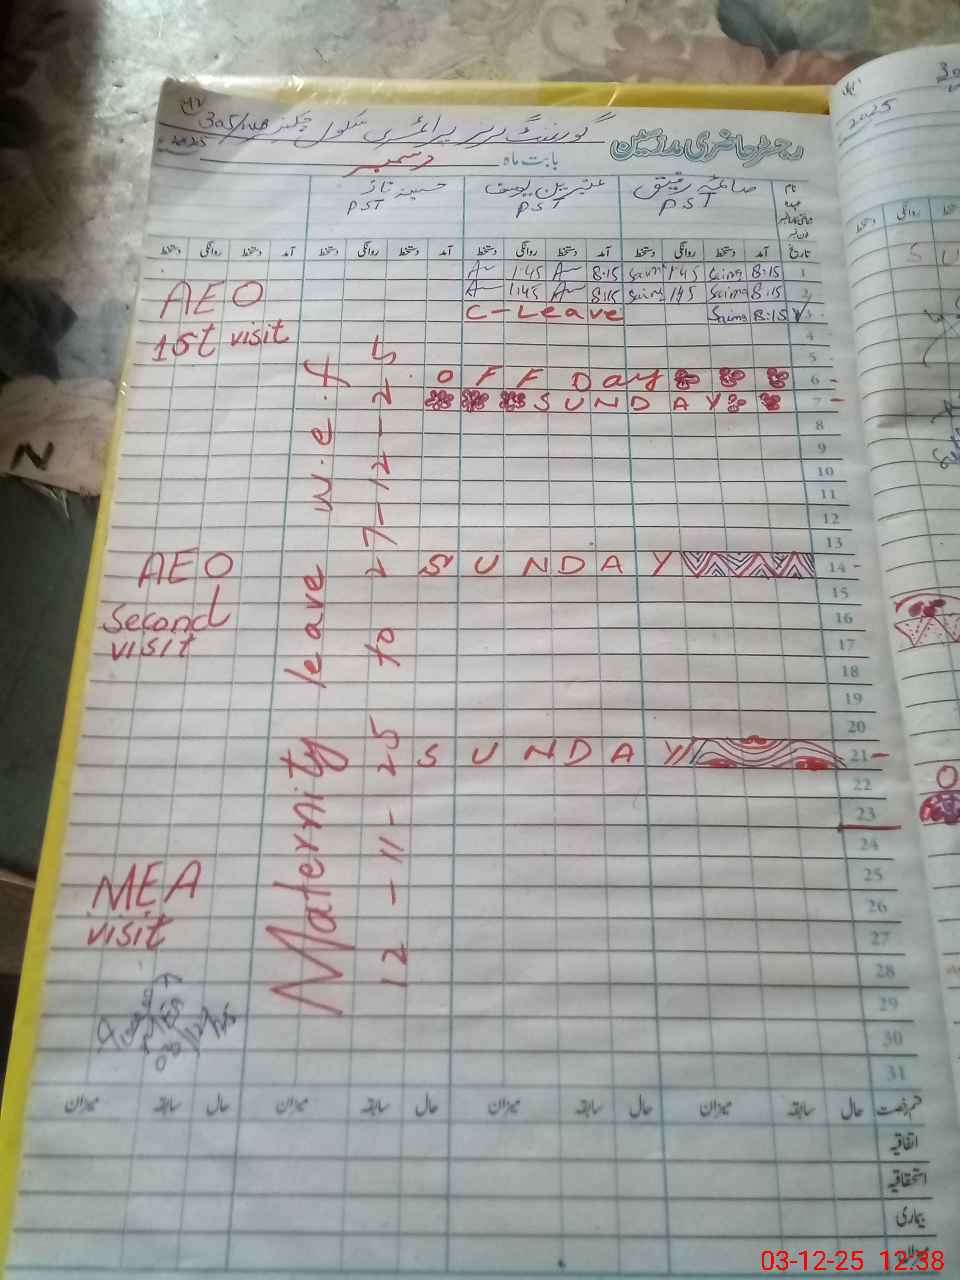 رجسٹر حاضری ملازمین
گورنمنٹ گرلز پرائمری سکول چک نمبر 305/HR
2025
بابت ماہ دسمبر
نام
صائمہ رفیق
عنبرین یوسف
حسینہ ناز
PST
PST
PST
تاریخ آمد دستخط روانگی دستخط آمد دستخط روانگی دستخط آمد دستخط روانگی دستخط آمد دستخط روانگی دستخط
1 8:15 Saima 1:45 8:15 1:45
2 8:15 Saima 1:45 Saima 8:15 1:45
3 8:15 Saima C-Leave
4
5
6 OFF Day
7 SUNDAY
8
9
10
11
12
13
14 SUNDAY
15
16
17
18
19
20
21 SUNDAY
22
23
24
25
26
27
28
29
30
31
AEO
1st visit
AEO
Second
visit
MEA
visit
Maternity leave w.e.f
12-11-25 to 7-12-25
MEA
03/12/25
قسم رخصت حال سابقہ میزان حال سابقہ میزان حال سابقہ میزان حال سابقہ میزان
اتفاقیہ
استحقاقیہ
بیماری
میزان
2025
روانگی دستخط
S U
N
03-12-25 12:38